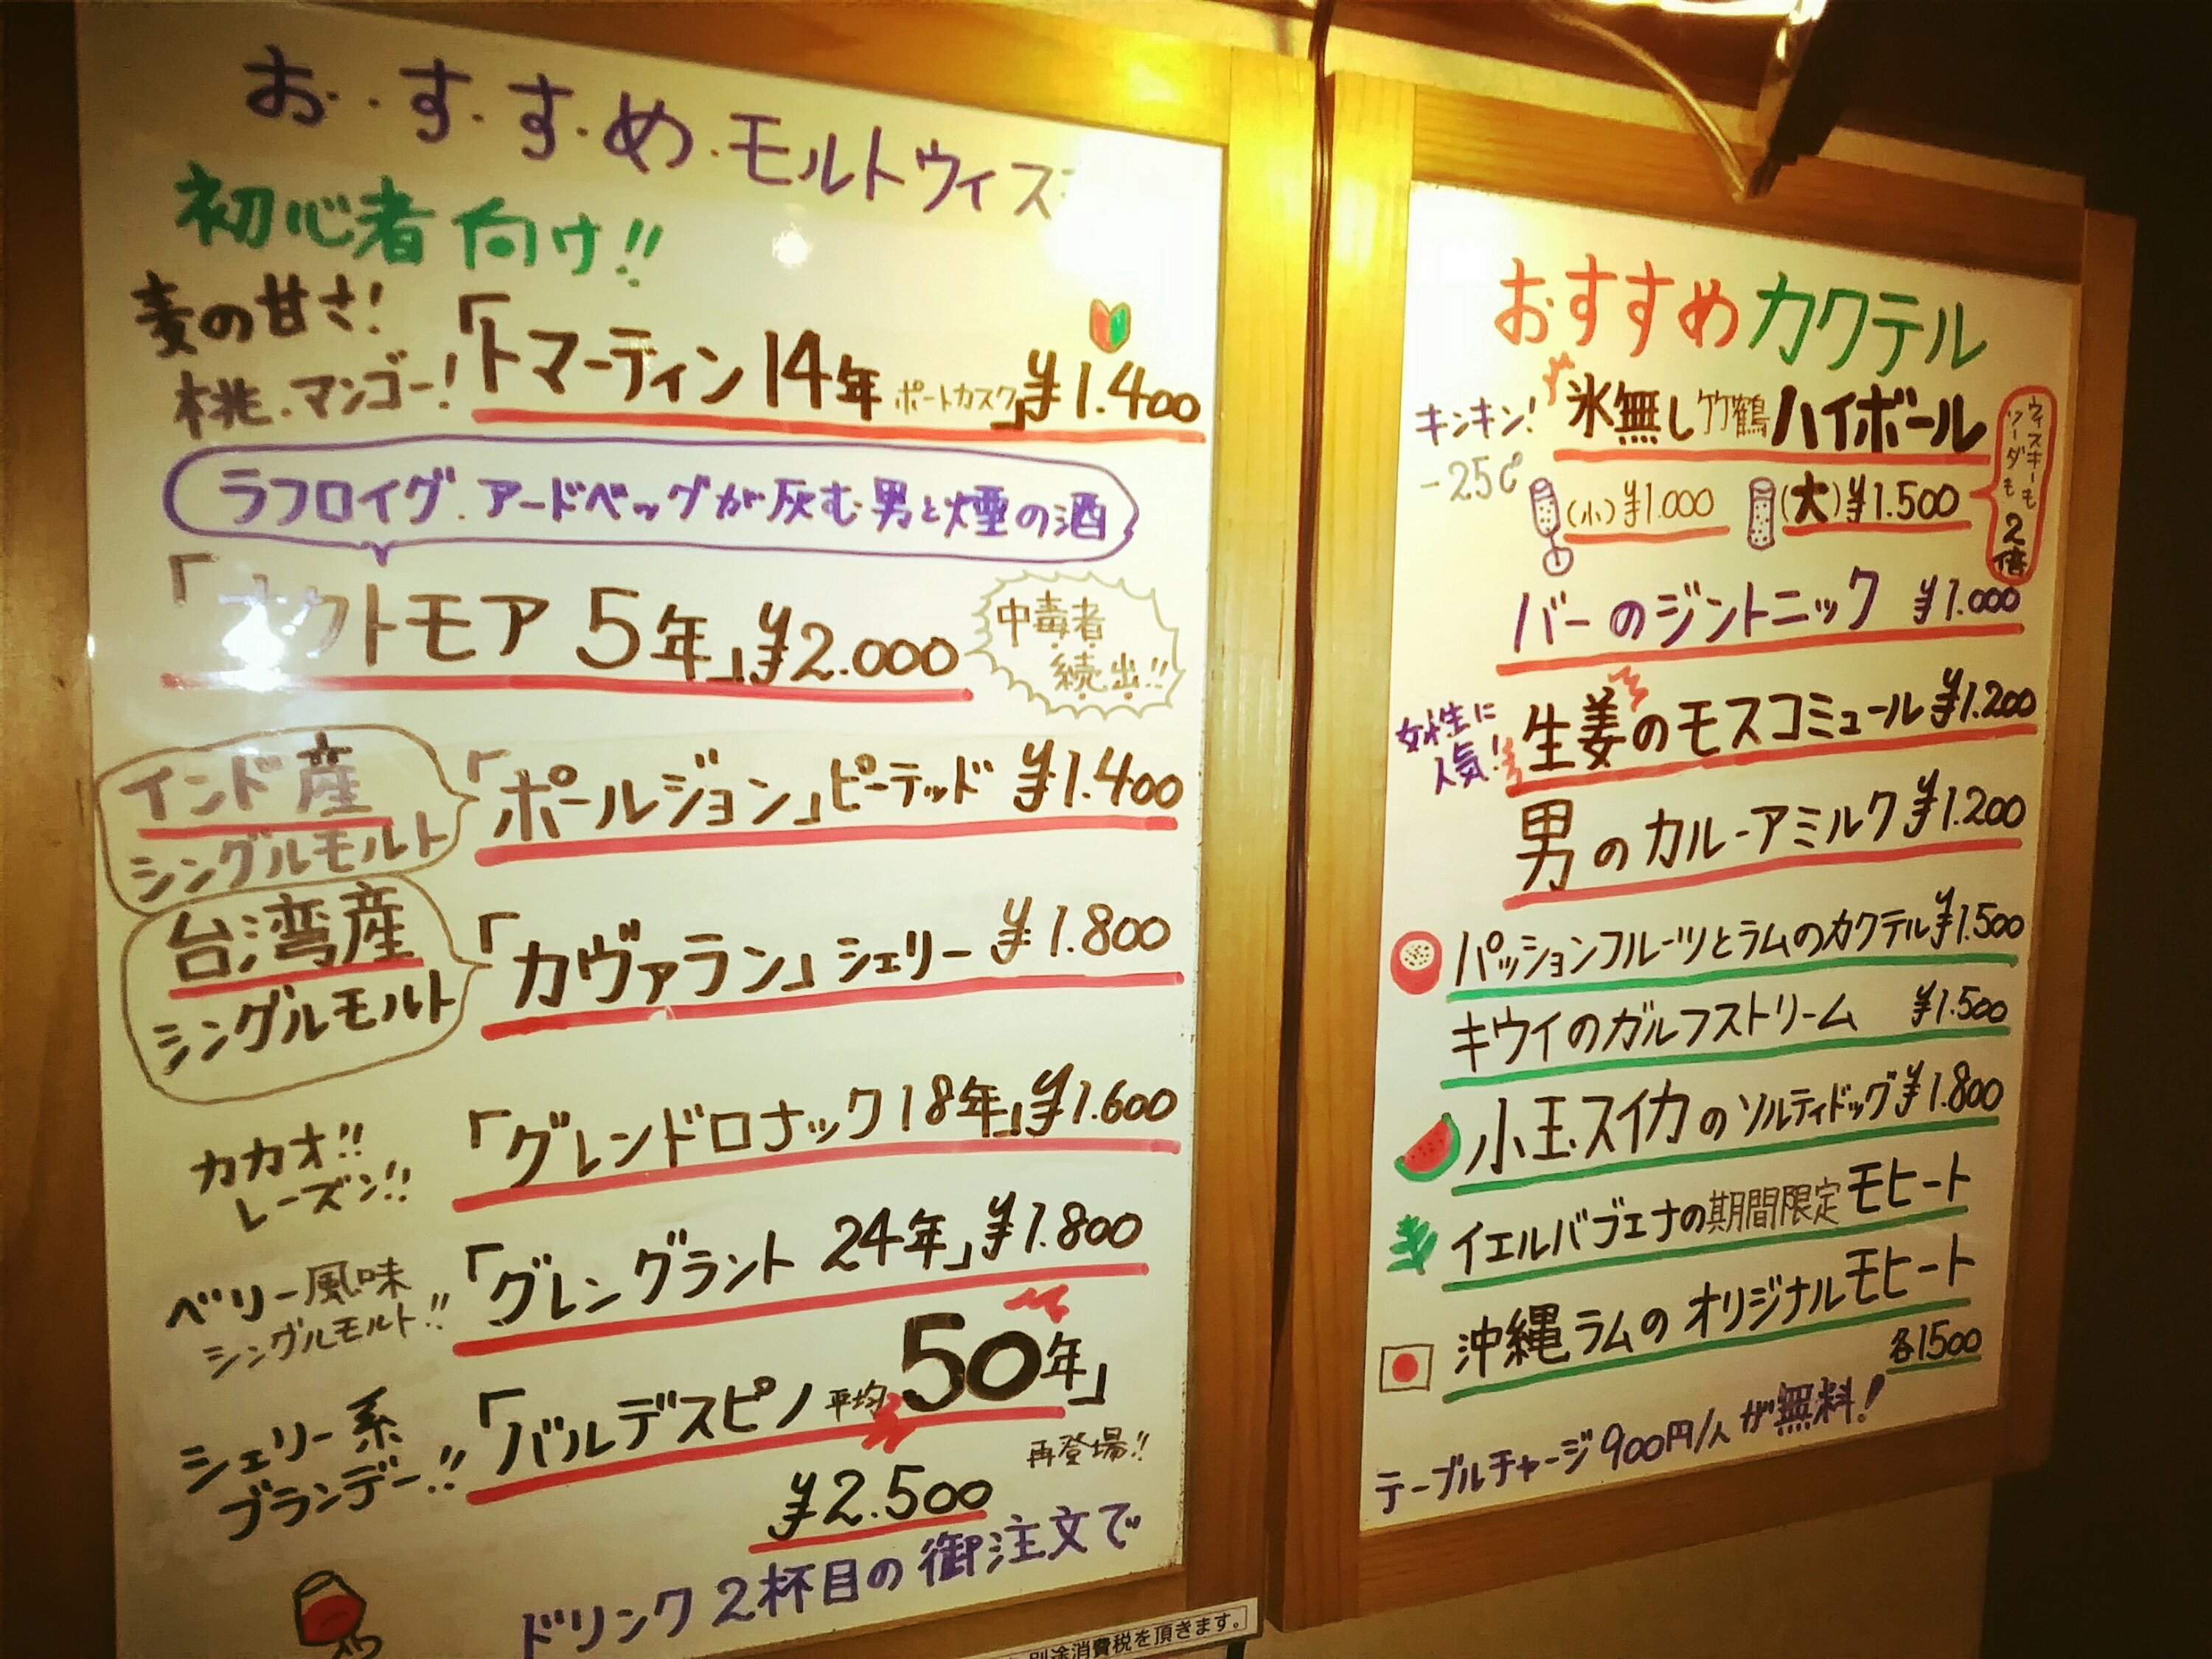 お・・す・す・め・モルトウィス
初心者向け!!
麦の甘さ!
桃・マンゴー!
「トマーティン14年 ポートカスク」¥1.400
ラフロイグ.アードベッグが灰む男と煙の酒
クトモア 5年」¥2.000
中毒者
続出!!
インド産
シングルモルト
「ポールジョン」ピーテッド ¥1.400
台湾産
シングルモルト
「カヴァラン」シェリー ¥1.800
カカオ!!
レーズン!!
「グレンドロナック18年」¥1.600
ベリー風味
シングルモルト!!
「グレングラント 24年」¥1.800
シェリー系
ブランデー!!
「バルデスピノ 平均50年」
再登場!!
¥2.500
ドリンク2杯目の御注文で
別途消費税を頂きます。
おすすめカクテル
キンキン!
-25℃
氷無し竹鶴ハイボール
(小)¥1.000
(大)¥1.500
ウィスキーも
ソーダも
2倍
バーのジントニック ¥1.000
女性に
人気!
生姜のモスコミュール¥1.200
男のカルーアミルク¥1.200
パッションフルーツとラムのカクテル¥1.500
キウイのガルフストリーム ¥1.500
小玉スイカのソルティドッグ¥1.800
イエルバブエナの期間限定モヒート
沖縄ラムのオリジナルモヒート
各1500
テーブルチャージ900円/人が無料!